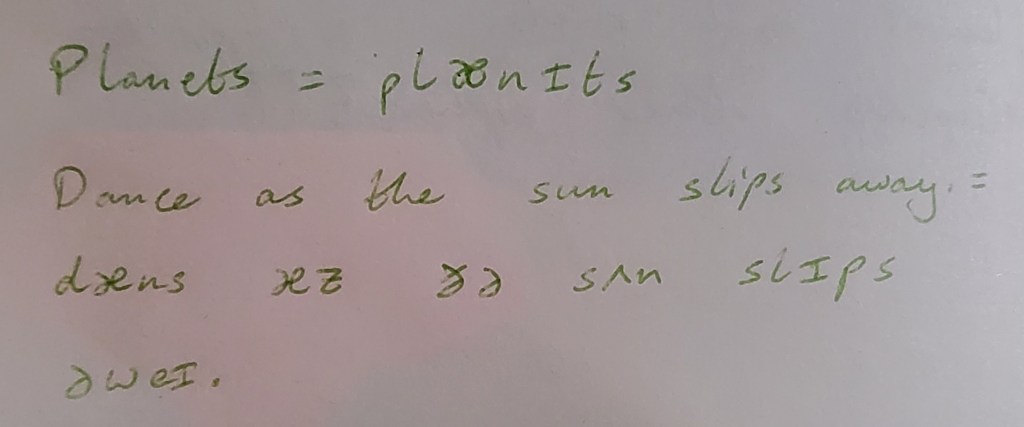 Planets = plænɪts
Dance as the sun slips away. =
dæns æz ðə sʌn slɪps
əweɪ.